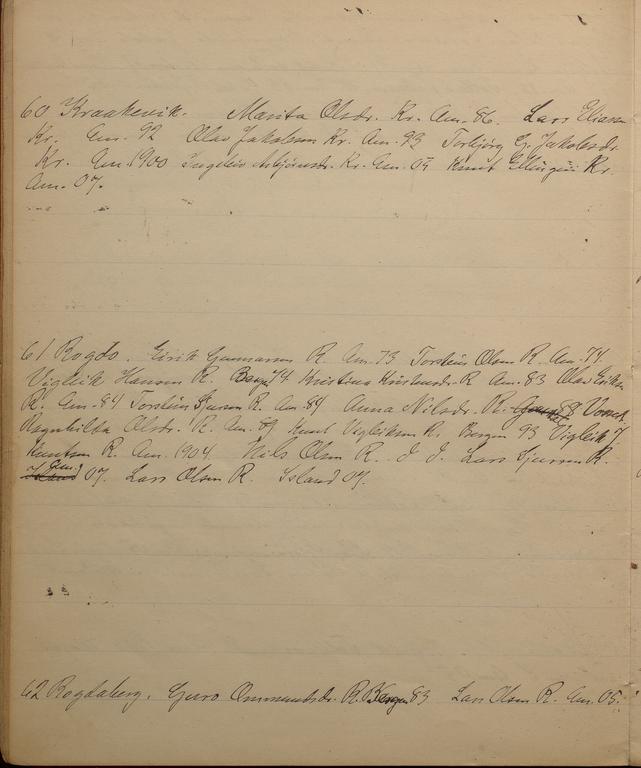 60 Kraakevik. Marita Olsdr. Kr. Am. 86. Lars Eliasen
Kr. Am. 92 Olav Jakobson Kr. Am. 93 Torbjörg G. Jakobsdr.
Kr. Am. 1900 Ingeleiv Asbjörnsdr. Kr. Am. 05 Knut Ellingsen Kr.
Am. 07.
61 Rogdo. Eirik Gunnarson R. Am. 73 Torstein Olson R. Am. 74
Vigleik Hanson R. Bergen 74 Kristina R. Am. 83 Olav Eirikson
R. Am. 84 Torstein Sjurson R. Am. 84 Anna Nilsdr. R. 88 Voss
Ragnhilda Olsdr. R. Am. 89 Knut Vigleikson R. Bergen 93 Vigleik J.
Knutson R. Am. 1904 Nils Olson R. Lars Sjurson R.
07. Lars Olson R. Island 07.
62 Rogdaberg. Guro Ommundsdr. R. Bergen 83 Lars Olson R. Am. 05.